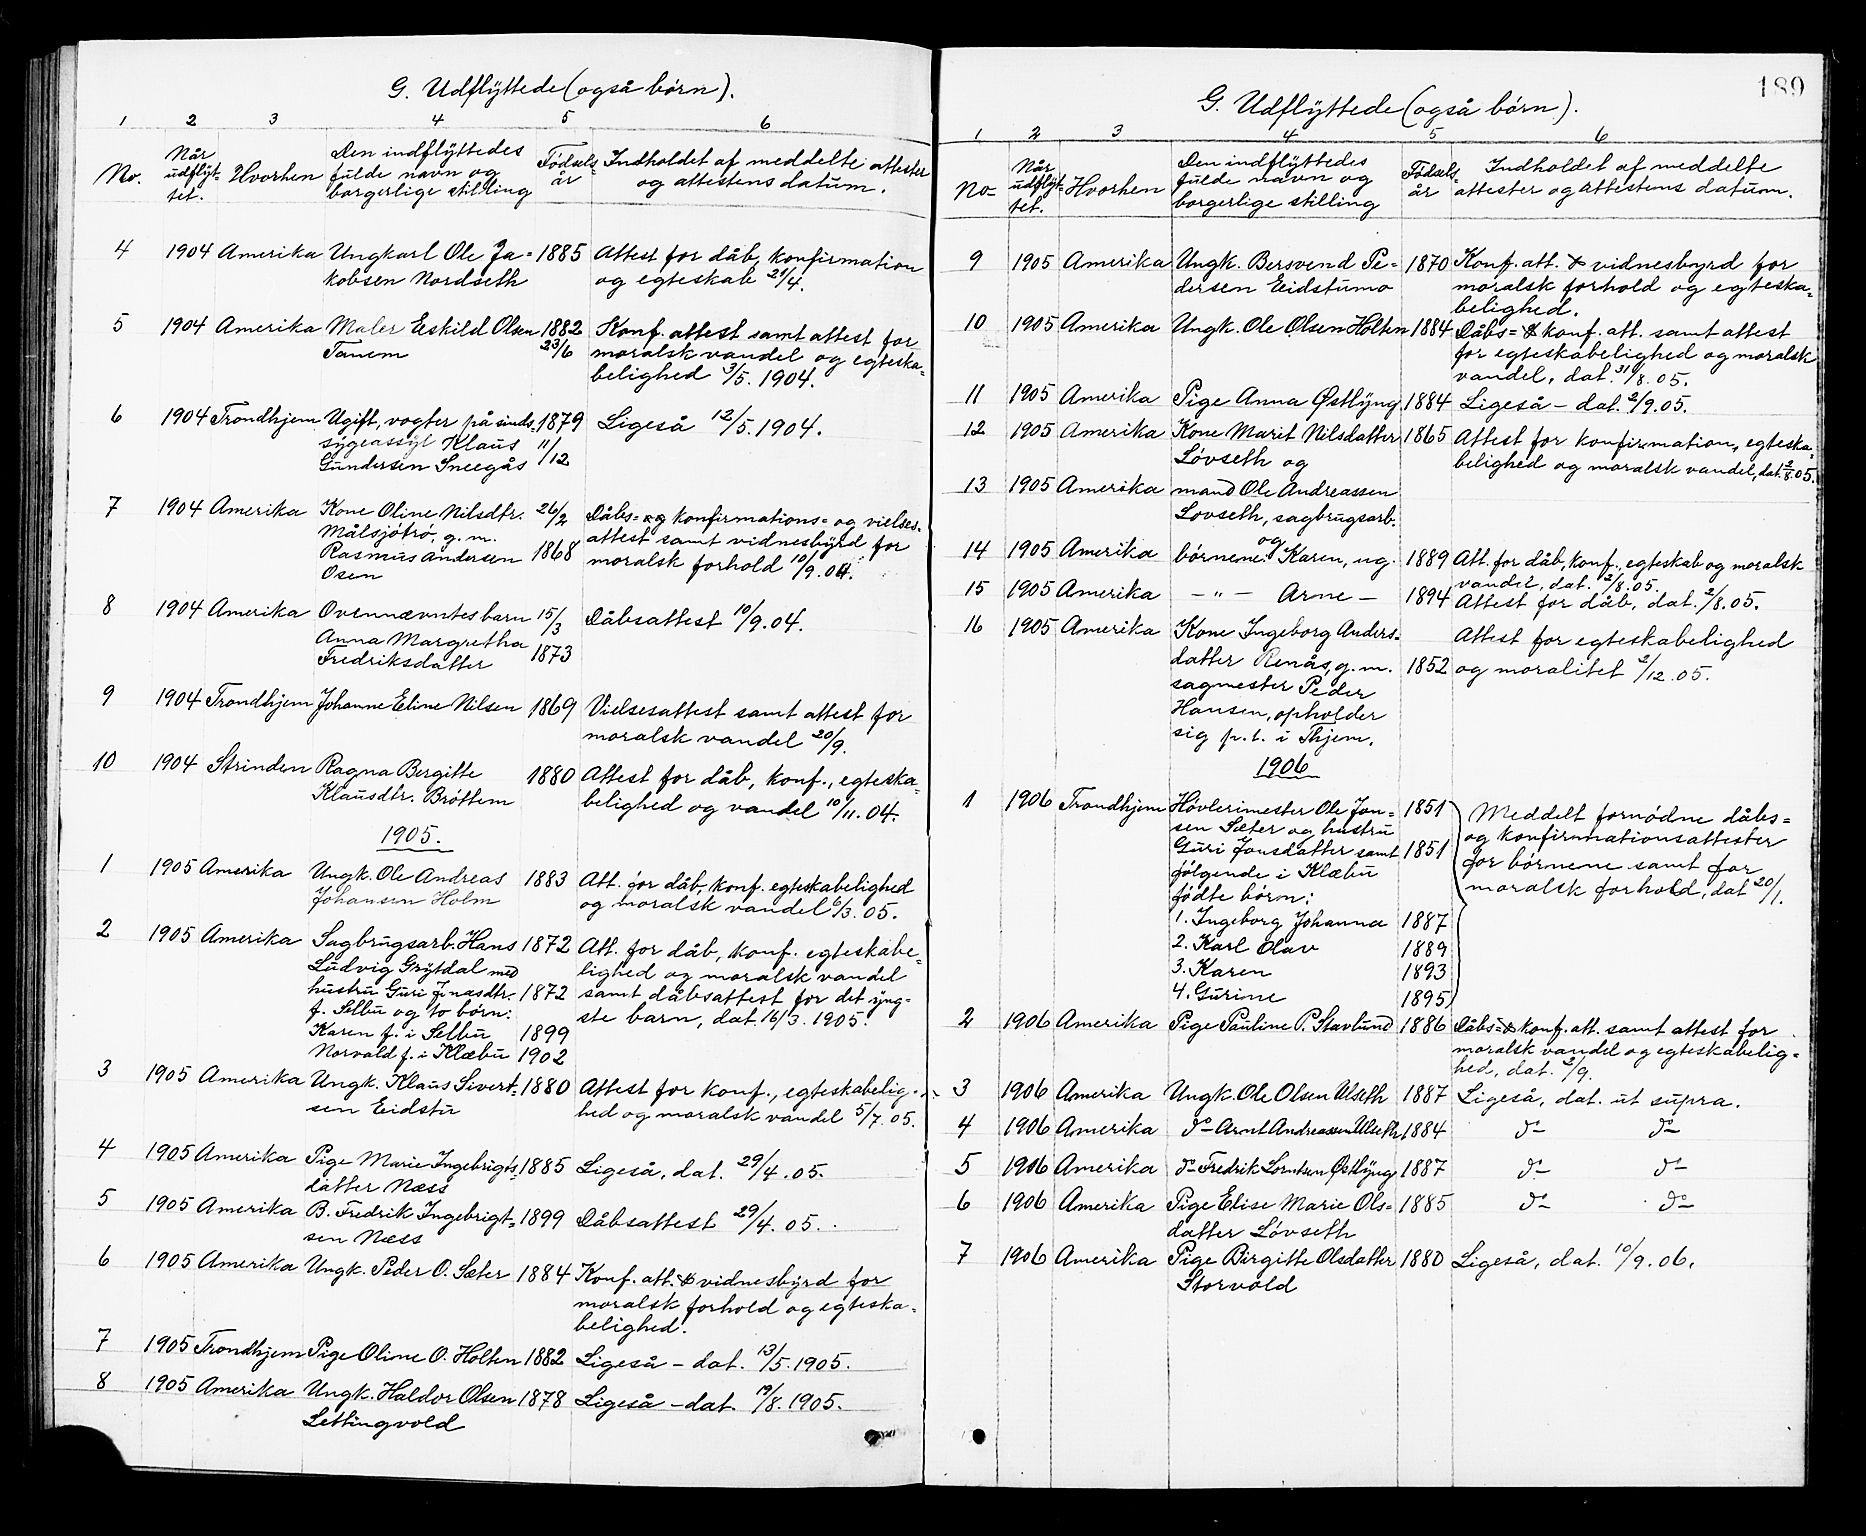 G. Udflyttede (også børn).
1 2 3 4 5 6
No. Når udflyt- tet. Hvorhen Den indflyttedes fulde navn og borgerlige stilling Fødsels- år Indholdet af meddelte attester og attestens datum.
4 1904 Amerika Ungkarl Ole Ja= 1885 Attest for dåb, konfirmation
kobsen Nordseth og egteskab 21/4.
5 1904 Amerika Maler Eskild Olsen 1882 Konf. attest samt attest for
Tanem 23/6 moralsk vandel og egteska=
belighed 3/5. 1904.
6 1904 Trondhjem Ugift, vogter på sinds- 1879 Ligeså 12/5. 1904.
sygeasyl Klaus 11/12
Gundersen Sneegås
7 1904 Amerika Kone Oline Nilsdtr. 26/2 Dåbs= og konfirmations= og vielses-
Målsjøtrø, g. m. attest samt vidnesbyrd for
Rasmus Andersen 1868 moralsk forhold 10/9. 04.
Osen
8 1904 Amerika Ovennævntes barn 15/3 Dåbsattest 10/9. 04.
Anna Margretha
Fredriksdatter 1873
9 1904 Trondhjem Johanne Eline Nilsen 1869 Vielsesattest samt attest for
moralsk vandel 20/9.
10 1904 Strinden Ragna Bergitte 1880 Attest for dåb, konf., egteska=
Klausdtr. Brøttem belighed og vandel 10/11. 04.
1905.
1 1905 Amerika Ungk. Ole Andreas 1883 Att. for dåb, konf. egteskabelighed
Johansen Holm og moralsk vandel 6/3. 05.
2 1905 Amerika Sagbrugsarb. Hans 1872 Att. for dåb, konf. egteskabe=
Ludvig Grytdal med lighed og moralsk vandel
hustru Guri Jonasdtr. 1872 samt dåbsattest for det yng=
f. Selbu og to børn: ste barn, dat. 16/3. 1905.
Karen f. i Selbu 1899
Norvald f. i Klæbu 1902
3 1905 Amerika Ungk. Klaus Sivert= 1880 Attest for konf., egteskabelig-
sen Eidstu hed og moralsk vandel 5/7. 05.
4 1905 Amerika Pige Marie Ingebrigts= 1885 Ligeså, dat. 29/4. 05.
datter Næss
5 1905 Amerika B. Fredrik Ingebrigt= 1899 Dåbsattest 29/4. 05.
sen Næss
6 1905 Amerika Ungk. Peder O. Sæter 1884 Konf. att. & vidnesbyrd for
moralsk forhold og egteska=
belighed.
7 1905 Trondhjem Pige Oline O. Holten 1882 Ligeså – dat. 13/5. 1905.
8 1905 Amerika Ungk. Haldor Olsen 1878 Ligeså – dat. 19/8. 1905.
Lettingvold
189
G. Udflyttede (også børn).
1 2 3 4 5 6
No. Når udflyt- tet. Hvorhen Den indflyttedes fulde navn og borgerlige stilling Fødsels- år Indholdet af meddelte attester og attestens datum.
9 1905 Amerika Ungk. Bersvend Pe= 1870 Konf. att. & vidnesbyrd for
dersen Eidstumo moralsk forhold og egteska=
belighed.
10 1905 Amerika Ungk. Ole Olsen Holten 1884 Dåbs= & konf. att. samt attest
for egteskabelighed og moralsk
vandel, dat. 31/8. 05.
11 1905 Amerika Pige Anna Østlyng 1884 Ligeså – dat. 2/9. 05.
12 1905 Amerika Kone Marit Nilsdatter 1865 Attest for konfirmation, egteska=
Løvseth og belighed og moralsk vandel, dat. 2/8. 05.
13 1905 Amerika mand Ole Andreassen
Løvseth, sagbrugsarb.
og
14 1905 Amerika børnene: Karen, ug. 1889 Att. for dåb, konf., egteskab og moralsk
vandel, dat. 2/8. 05.
15 1905 Amerika – " – Arne – 1894 Attest for dåb, dat. 2/8. 05.
16 1905 Amerika Kone Ingeborg Anders= Attest for egteskabelighed
datter Renås, g. m. 1852 og moralitet 2/12. 05.
sagmester Peder
Hansen, opholder
sig p. t. i Thjem.
1906
1 1906 Trondhjem Høvlerimester Ole Jon= 1851 Meddelt fornødne dåbs=
sen Sæter og hustru og konfirmationsattester
Guri Jonsdatter samt 1851 for børnene samt for
følgende i Klæbu moralsk forhold, dat 20/1.
fødte børn:
1. Ingeborg Johanna 1887
2. Karl Olav 1889
3. Karen 1893
4. Gurine 1895
2 1906 Amerika Pige Pauline P. Stavlund 1886 Dåbs= & konf. att. samt attest for
moralsk vandel og egteskabelig=
hed, dat. 2/9.
3 1906 Amerika Ungk. Ole Olsen Ulseth 1887 Ligeså, dat. ut supra.
4 1906 Amerika do Arnt Andreassen Ulseth 1884 do do
5 1906 Amerika do Fredrik Lorntsen Østlyng 1887 do do
6 1906 Amerika Pige Elise Marie Ols= 1885 do do
datter Løvseth
7 1906 Amerika Pige Birgitte Olsdatter 1880 Ligeså, dat. 10/9. 06.
Storvold